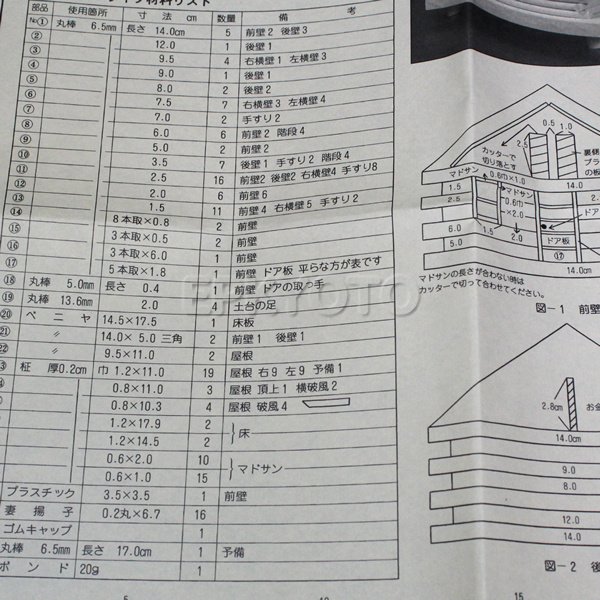 材料リスト
部品 使用箇所 寸法 cm 数量 備考
№① 丸棒 6.5mm 長さ 14.0cm 5 前壁2 後壁3
② 12.0 1 後壁1
③ 9.5 4 右横壁1 左横壁3
④ 9.0 1 後壁1
⑤ 8.0 2 後壁2
⑥ 7.5 7 右横壁3 左横壁4
⑦ 7.0 2 手すり2
⑧ 6.0 6 前壁2 階段4
⑨ 5.0 2 前壁2
⑩ 3.5 7 後壁1 手すり2 階段4
⑪ 2.5 16 前壁2 後壁2 右横壁4 手すり8
⑫ 2.0 6 前壁6
⑬ 1.5 11 前壁4 右横壁5 手すり2
⑭ 8本取×0.8 2 前壁
⑮ 3本取×0.5 2 前壁
⑯ 3本取×6.0 1 前壁
⑰ 5本取×1.8 1 前壁 ドア板 平らな方が表です
⑱ 丸棒 5.0mm 長さ 0.4 1 前壁 ドアの取っ手
⑲ 丸棒 13.6mm 2.0 4 土台の足
⑳ ベニヤ 14.5×17.5 1 床板
㉑ 〃 14.0×5.0三角 2 前壁1 後壁1
㉒ 〃 9.5×11.0 2 屋根
柾 厚0.2cm 巾1.2×11.0 19 屋根 右9 左9 予備1
0.8×11.0 3 屋根 頂上1 横破風2
0.8×10.3 4 屋根 破風4
1.2×17.9 2 床
1.2×14.5 2
0.6×2.0 10 マドサン
0.6×1.0 15
プラスチック 3.5×3.5 1 前壁
妻揚子 0.2丸×6.7 16
ゴムキャップ 1
丸棒 6.5mm 長さ 17.0cm 1 予備
ボンド 20g 1
EMIYOTO
0.5 1.0
2.5
カッターで
切り落とす
裏側
プラ
の板
マドサン
0.6巾×1.0
1.5
14.0
2.5
マドサン
0.6巾
×2.0
6.0
5.0
2.0
ドア板
⑰
14.0cm
マドサンの長さが合わない時は
カッターで切って合わせてください。
図-1 前壁
2.8cm
お金
14.0cm
9.0
8.0
12.0
14.0
図-2 後
5 10 15